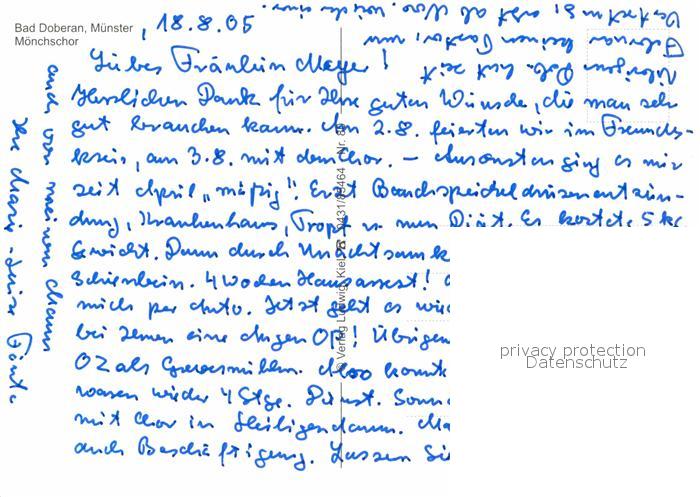 Bad Doberan, Münster
Mönchschor
18.8.05
Liebes Fräulein Meyer!
Herzlichen Dank für Ihre guten Wünsche, die man sehr
gut brauchen kann. Am 2.8. feierten wir im Freundes-
kreis, am 3.8. mit dem Chor. – Ansonsten ging es mir
seit April „mäßig“. Erst Bauchspeicheldrüsenentzün-
dung, Krankenhaus, Tropf u. nun Diät. Es kostete 5 kg
Gewicht. Dann durch Unachtsamk
Schienbein. 4 Wochen Hausarrest!
mich per Auto. Jetzt geht es wie
bei Jemen eine Augen OP! Übrigen
OZ als
waren wieder 4 Stge. Dienst. Sonn
mit Chor in Heiligendamm. Ma
auch Beschäftigung. Lassen Si
auch von meinem Mann
Ihre Marie-Luise
Übrigens hat seit
keinen Pastor, nur
© Verlag Ludwig, Kiel ☎ 0431/85464 Nr. 8
privacy protection
Datenschutz